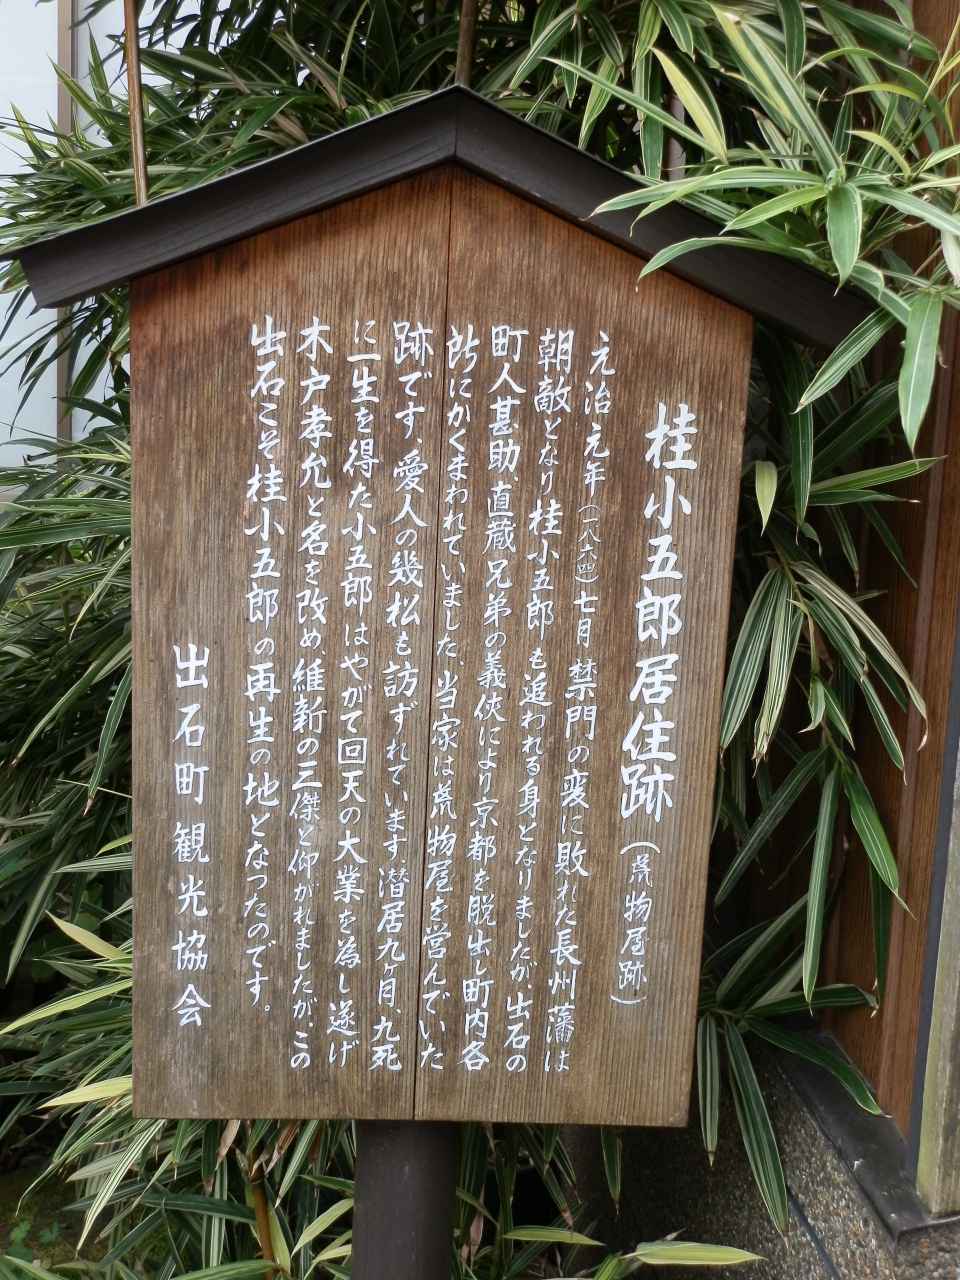 桂小五郎居住跡（荒物屋跡）
元治元年（一八六四）七月禁門の変に敗れた長州藩は
朝敵となり桂小五郎も追われる身となりましたが、出石の
町人甚助、直蔵兄弟の義侠により京都を脱出し町内各
所にかくまわれていました。当家は荒物屋を営んでいた
跡です。愛人の幾松も訪ずれています。潜居九ヶ月、九死
に一生を得た小五郎はやがて回天の大業を為し遂げ
木戸孝允と名を改め、維新の三傑と仰がれましたが、この
出石こそ桂小五郎の再生の地となつたのです。
出石町観光協会